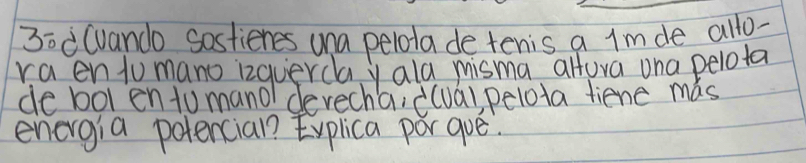 3=¿Cuando sostienes una pelota de tenis a 1m de alto-
ra en tu mano izquierda y ala misma altura una pelota
de bol en tu mano derecha, ¿Cual, pelota tiene más
energía potencial? Explica por qué.